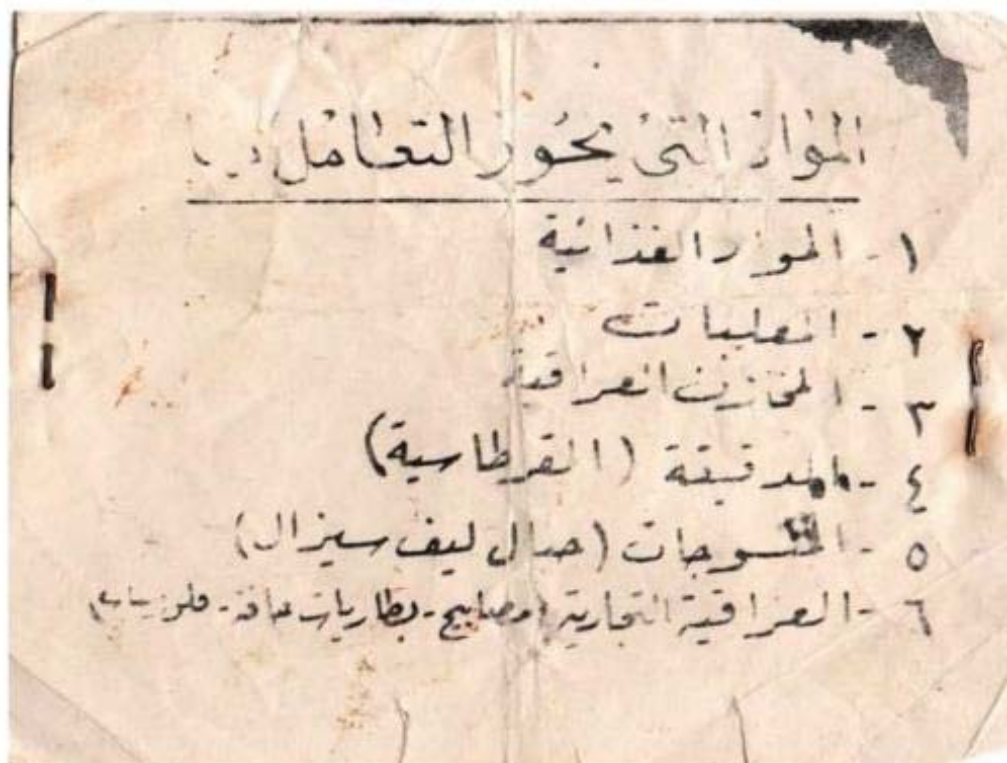 المواد التي يجوز التعامل بها
١ - المواد الغذائية
٢ - المعلبات
٣ - المخازن العراقية
٤ - الدقيقة (القرطاسية)
٥ - المنسوجات (حبال ليف سيزال)
٦ - العراقية التجارية (مصابيح - بطاريات جافة -